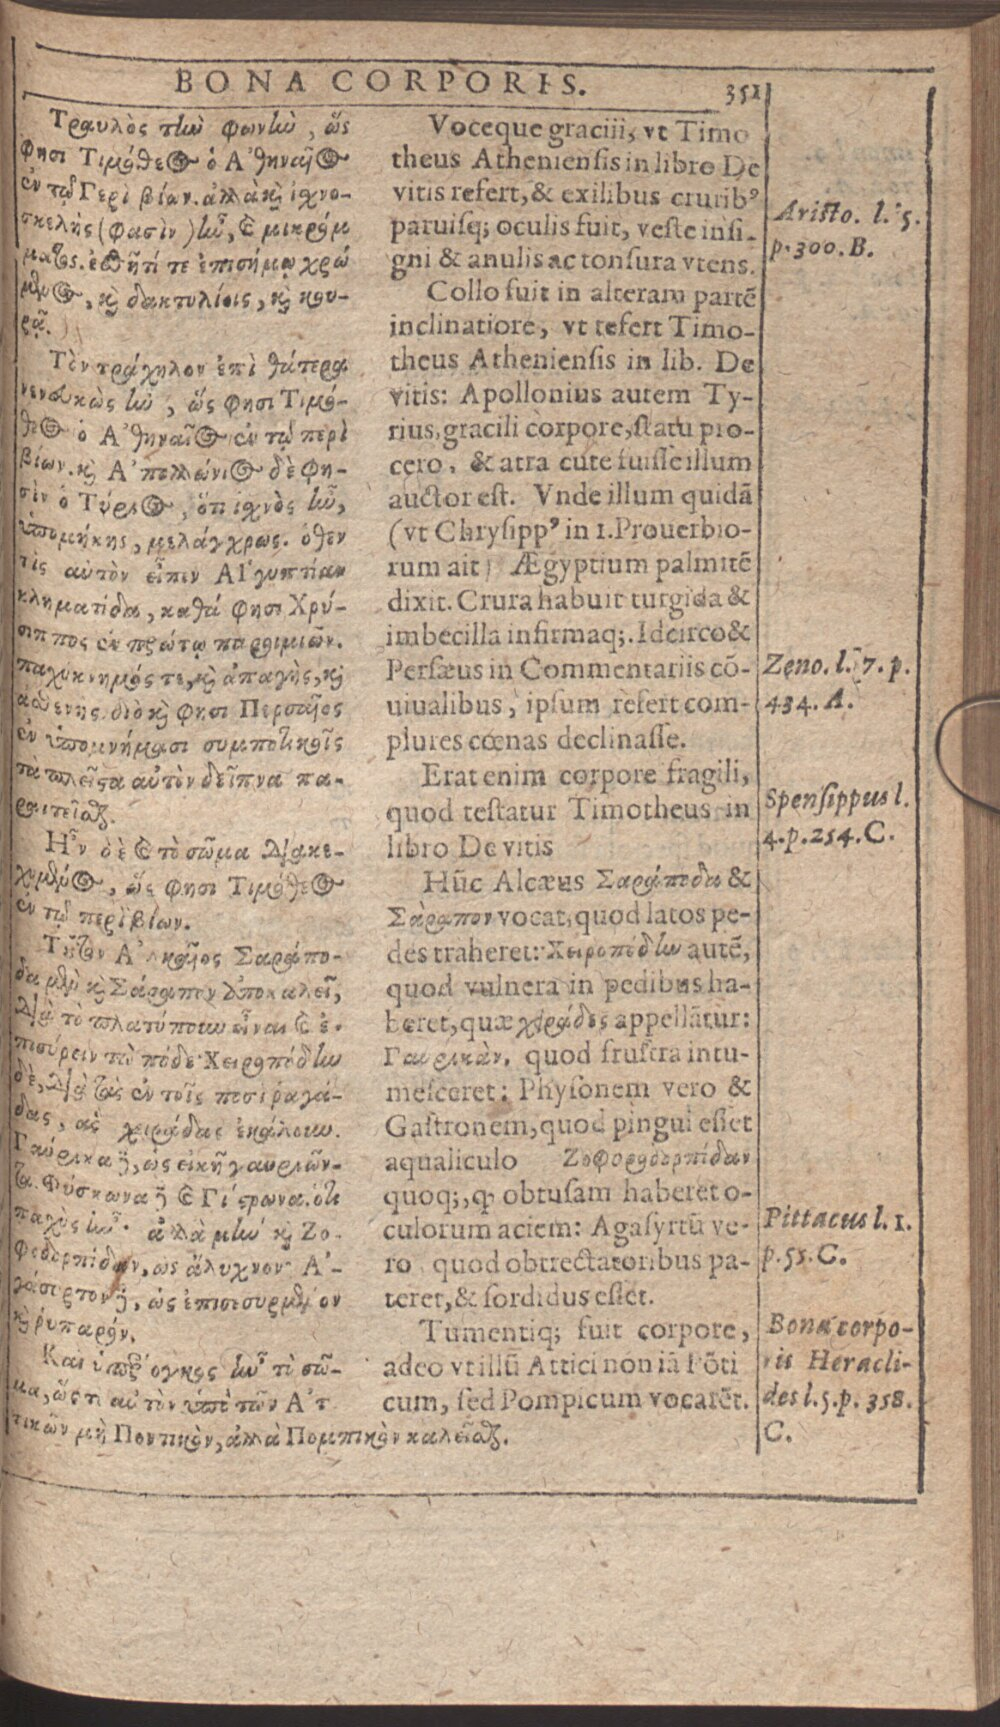 BONA CORPORIS.
351
Τραυλὸς τὴν φωνὴν, ὥς
φησι Τιμόθεος ὁ Ἀθηναῖος
ἐν τῷ Περὶ βίων. ἀλλὰ καὶ ἰχνο-
σκελὴς (φασὶν) ἦν, καὶ μικρόμ
ματος. ἐσθῆτί τε ἐπισήμῳ χρώ
μενος, καὶ δακτυλίοις, καὶ κου-
ρᾷ.
Τὸν τράχηλον ἐπὶ θάτερα
νενευκὼς ἦν, ὥς φησι Τιμό-
θεος ὁ Ἀθηναῖος ἐν τῷ περὶ
βίων. καὶ Ἀπολλώνιος δὲ φη-
σὶν ὁ Τύριος, ὅτι ἰχνὸς ἦν,
ὑπομήκης, μελάγχρως. ὅθεν
τὶς αὐτὸν εἶπεν Αἰγυπτίαν
κληματίδα, καθά φησι Χρύ-
σιππος ἐν πρώτῳ παροιμιῶν.
παχυκνημός τε, καὶ ἀπαγὴς, καὶ
ἀσθενής. διὸ καὶ φησι Περσαῖος
ἐν ὑπομνήμασι συμποτικοῖς
τὰ πλεῖστα αὐτὸν δεῖπνα πα-
ραιτεῖσθαι.
Ἦν δὲ καὶ τὸ σῶμα διακε-
χυμένος, ὥς φησι Τιμόθεος
ἐν τῷ περὶ βίων.
Τοῦτον Ἀλκαῖος Σαράπο-
δα μὲν καὶ Σάραπον ἀποκαλεῖ,
διὰ τὸ πλατύπουν εἶναι καὶ ἐ-
πισύρειν τὼ πόδε· Χειροπόδην
δὲ, διὰ τὰς ἐν τοῖς ποσὶ ῥαγά-
δας, ἃς χειράδας ἐκάλουν.
Γαύρικα δὲ, ὡς εἰκῆ γαυριῶν-
τα. Φύσκωνα δὲ καὶ Γάστρωνα, ὅτι
παχὺς ἦν· ἀλλὰ μὴν καὶ Ζο-
φοδορπίδαν, ὡς ἄλυχνον· Ἀ-
γάσυρτον δὲ, ὡς ἐπισεσυρμένον
καὶ ῥυπαρόν.
Καὶ ὑπέρογκος ἦν τὸ σῶ-
μα, ὥστε αὐτὸν ὑπὸ τῶν Ἀτ
τικῶν μὴ Ποντικὸν, ἀλλὰ Πομπικὸν καλεῖσθαι.
Voceque gracili, vt Timo
theus Atheniensis in libro De
vitis refert, & exilibus cruribꝰ
paruisq; oculis fuit, veste insi-
gni & anulis ac tonsura vtens.
Collo fuit in alteram partē
inclinatiore, vt refert Timo-
theus Atheniensis in lib. De
vitis: Apollonius autem Ty-
rius, gracili corpore, statu pro-
cero, & atra cute fuisse illum
auctor est. Vnde illum quidā
(vt Chrysippꝰ in 1. Prouerbio-
rum ait) Ægyptium palmitē
dixit. Crura habuit turgida &
imbecilla infirmaq;. Idcirco &
Persæus in Commentariis cō-
uiualibus, ipsum refert com-
plures cœnas declinasse.
Erat enim corpore fragili,
quod testatur Timotheus in
libro De vitis
Hūc Alcæus Σαράποδα &
Σάραπον vocat, quod latos pe-
des traheret: Χειροπόδην autē,
quod vulnera in pedibus ha-
beret, quæ χιράδες appellātur:
Γαυρικὰν, quod frustra intu-
mesceret: Physonem vero &
Gastronem, quod pingui esset
aqualiculo Ζοφοροδορπίδαν
quoq;, ꝙ obtusam haberet o-
culorum aciem: Agasyrtū ve-
ro quod obtrectatoribus pa-
teret, & sordidus esset.
Tumentiq; fuit corpore,
adeo vt illū Attici non iā Pōti
cum, sed Pompicum vocarēt.
Aristo. l. 5.
p. 300. B.
Zeno. l. 7. p.
434. A.
Speusippus l.
4. p. 254. C.
Pittacus l. 1.
p. 51. C.
Bona corpo-
ris Heracli-
des l. 5. p. 358.
C.